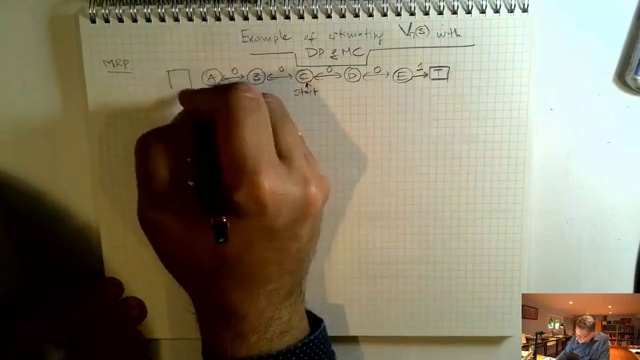 Example of estimating Vπ(s) with
DP & MC
MRP
A 0 B 0 C 0 D 0 E 1 T
start